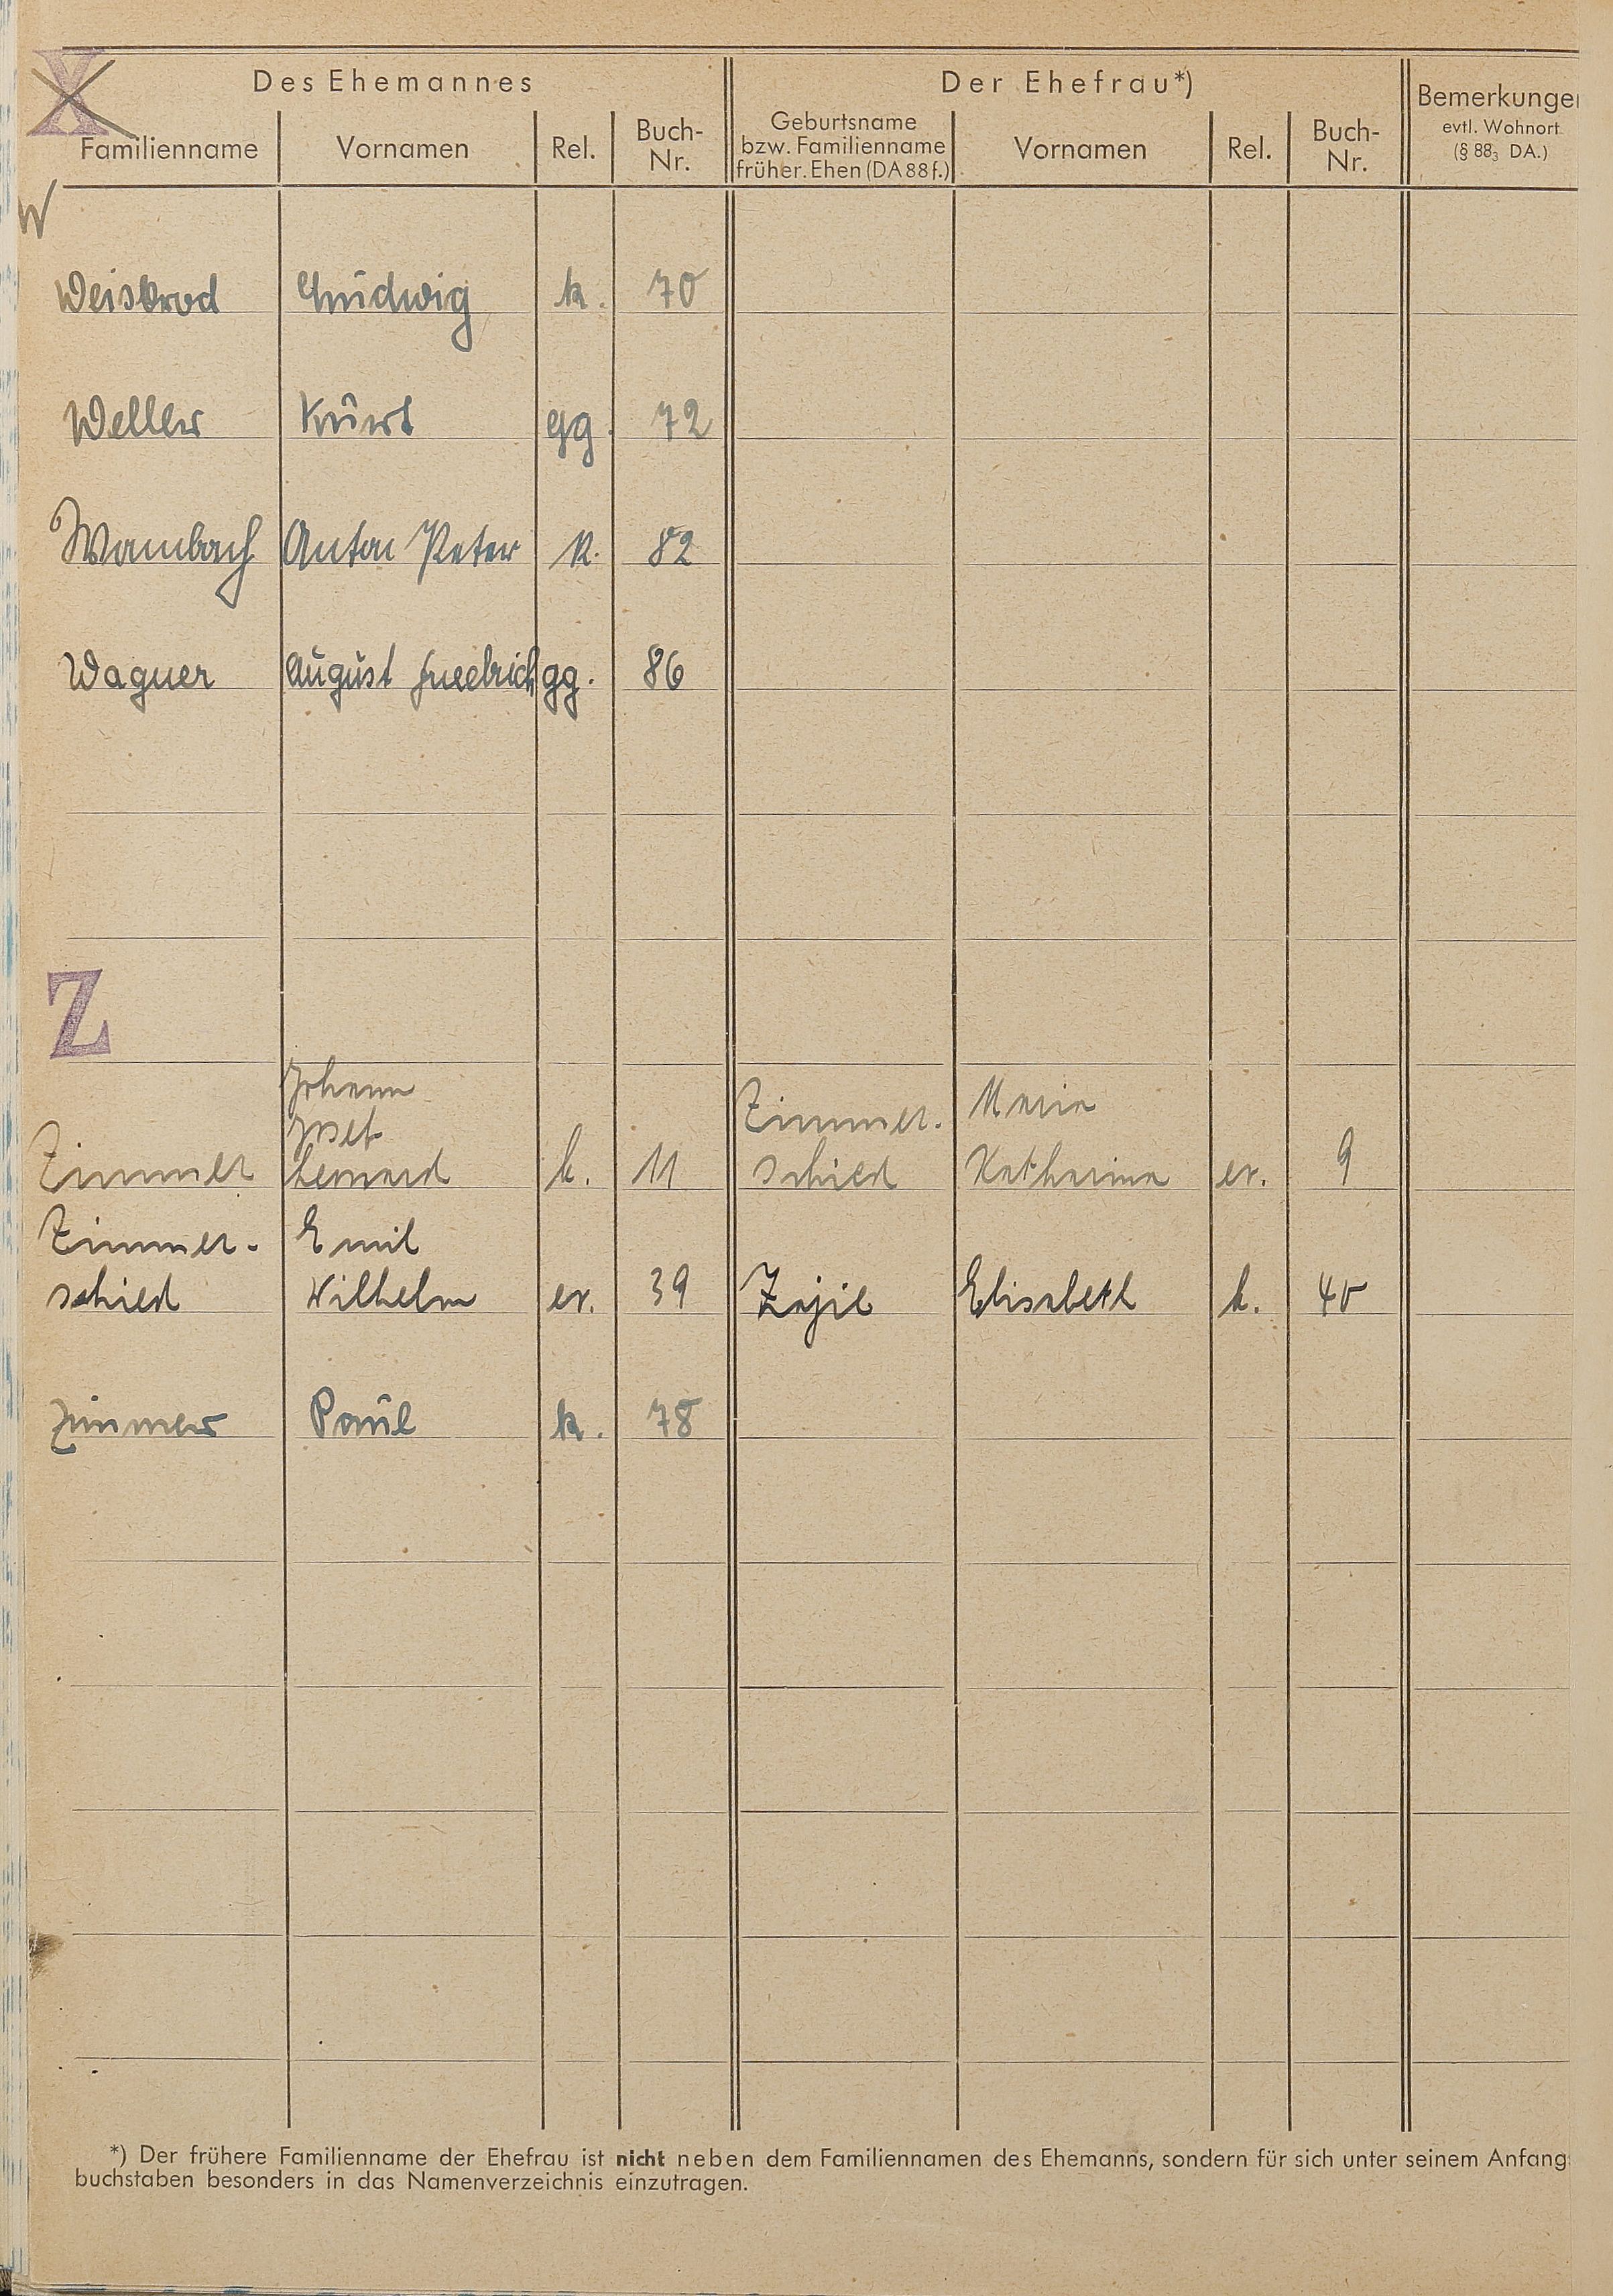 X
Des Ehemannes Der Ehefrau*) Bemerkunge
evtl. Wohnort
(§ 88₃ DA.)
Familienname Vornamen Rel. Buch-Nr. Geburtsname bzw. Familienname früher. Ehen (DA 88 f.) Vornamen Rel. Buch-Nr.
W
Weisbrod Ludwig k. 70
Weller Kurt gg. 72
Wambach Anton Peter k. 82
Wagner August Friedrich gg. 86
Z
Johann
Josef Zimmer- Maria
Zimmer Leonard k. 11 schied Katharina ev. 9
Zimmer- Emil
schied Wilhelm ev. 39 Elisabeth k. 40
Zimmer Paul k. 78
*) Der frühere Familienname der Ehefrau ist nicht neben dem Familiennamen des Ehemanns, sondern für sich unter seinem Anfang
buchstaben besonders in das Namenverzeichnis einzutragen.